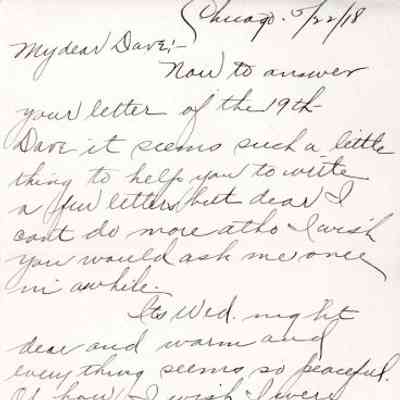 Chicago. 5/22/18
My dear Dave:-
Now to answer
your letter of the 19th
Dave it seems such a little
thing to help you to write
a few letters but dear I
cant do more altho I wish
you would ask me once
in awhile.
Its Wed. night
dear and warm and
everything seems so peaceful.
Oh how I wish I were